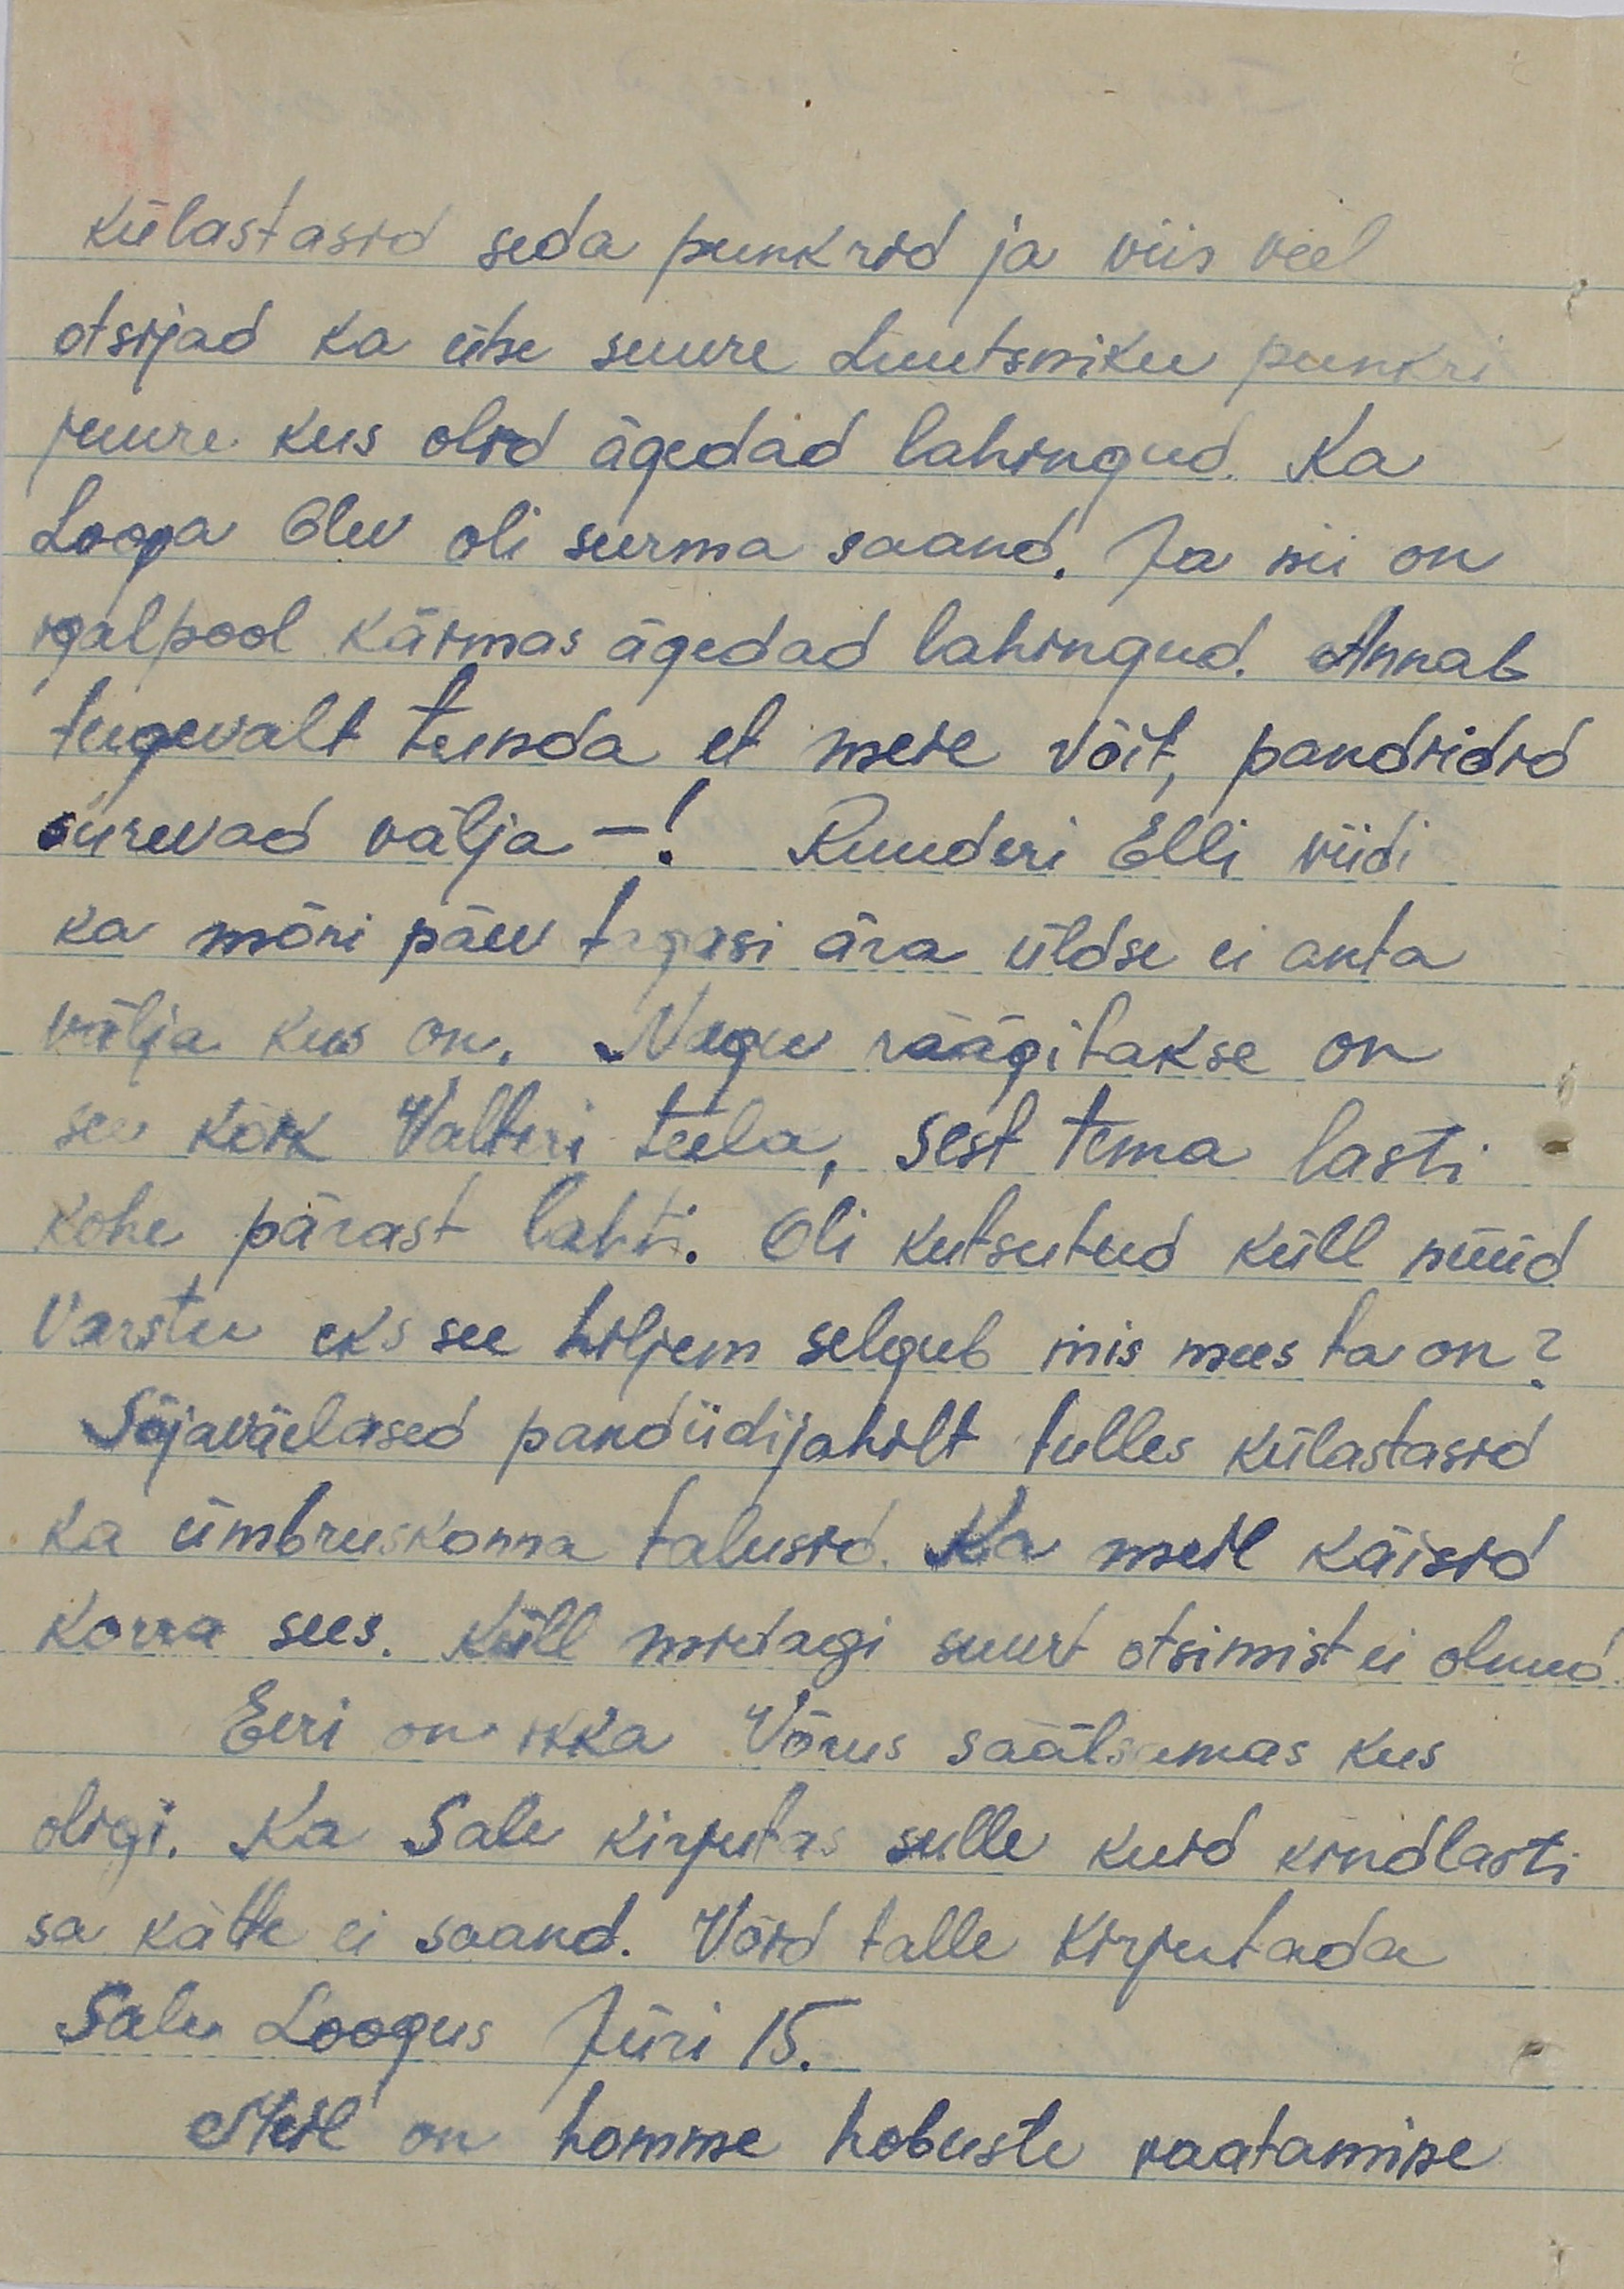 külastasid seda punkrid ja viis veel
otsijad ka ühe suure Luutsniku punkri
juure kus olid ägedad lahingud. Ka
Looga Olev oli surma saand. Ja nii on
igalpool käimas ägedad lahingud. Annab
tugevalt tunda et meie võit, pandiidid
surevad välja -! Ruuderi Elli viidi
ka mõni päev tagasi ära üldse ei anta
välja kus on. Nagu räägitakse on
see kõik Valteri teela, sest tema lasti
kohe pärast lahti. Oli kutsutud küll nüüd
Varstu eks see hiljem selgub mis mees ta on?
Sõjaväelased pandiidijahilt tulles külastasid
ka ümbruskonna talusid. Ka meil käisid
korra sees. Küll midagi suurt otsimist ei olnud.
Eeri on ikka Võrus säälsamas kus
oligi. Ka Sale kirjutas sulle kuid kindlasti
sa kätte ei saand. Võid talle kirjutada
Sale Loogus Jüri 15.
Meil on homme hobuste vaatamine